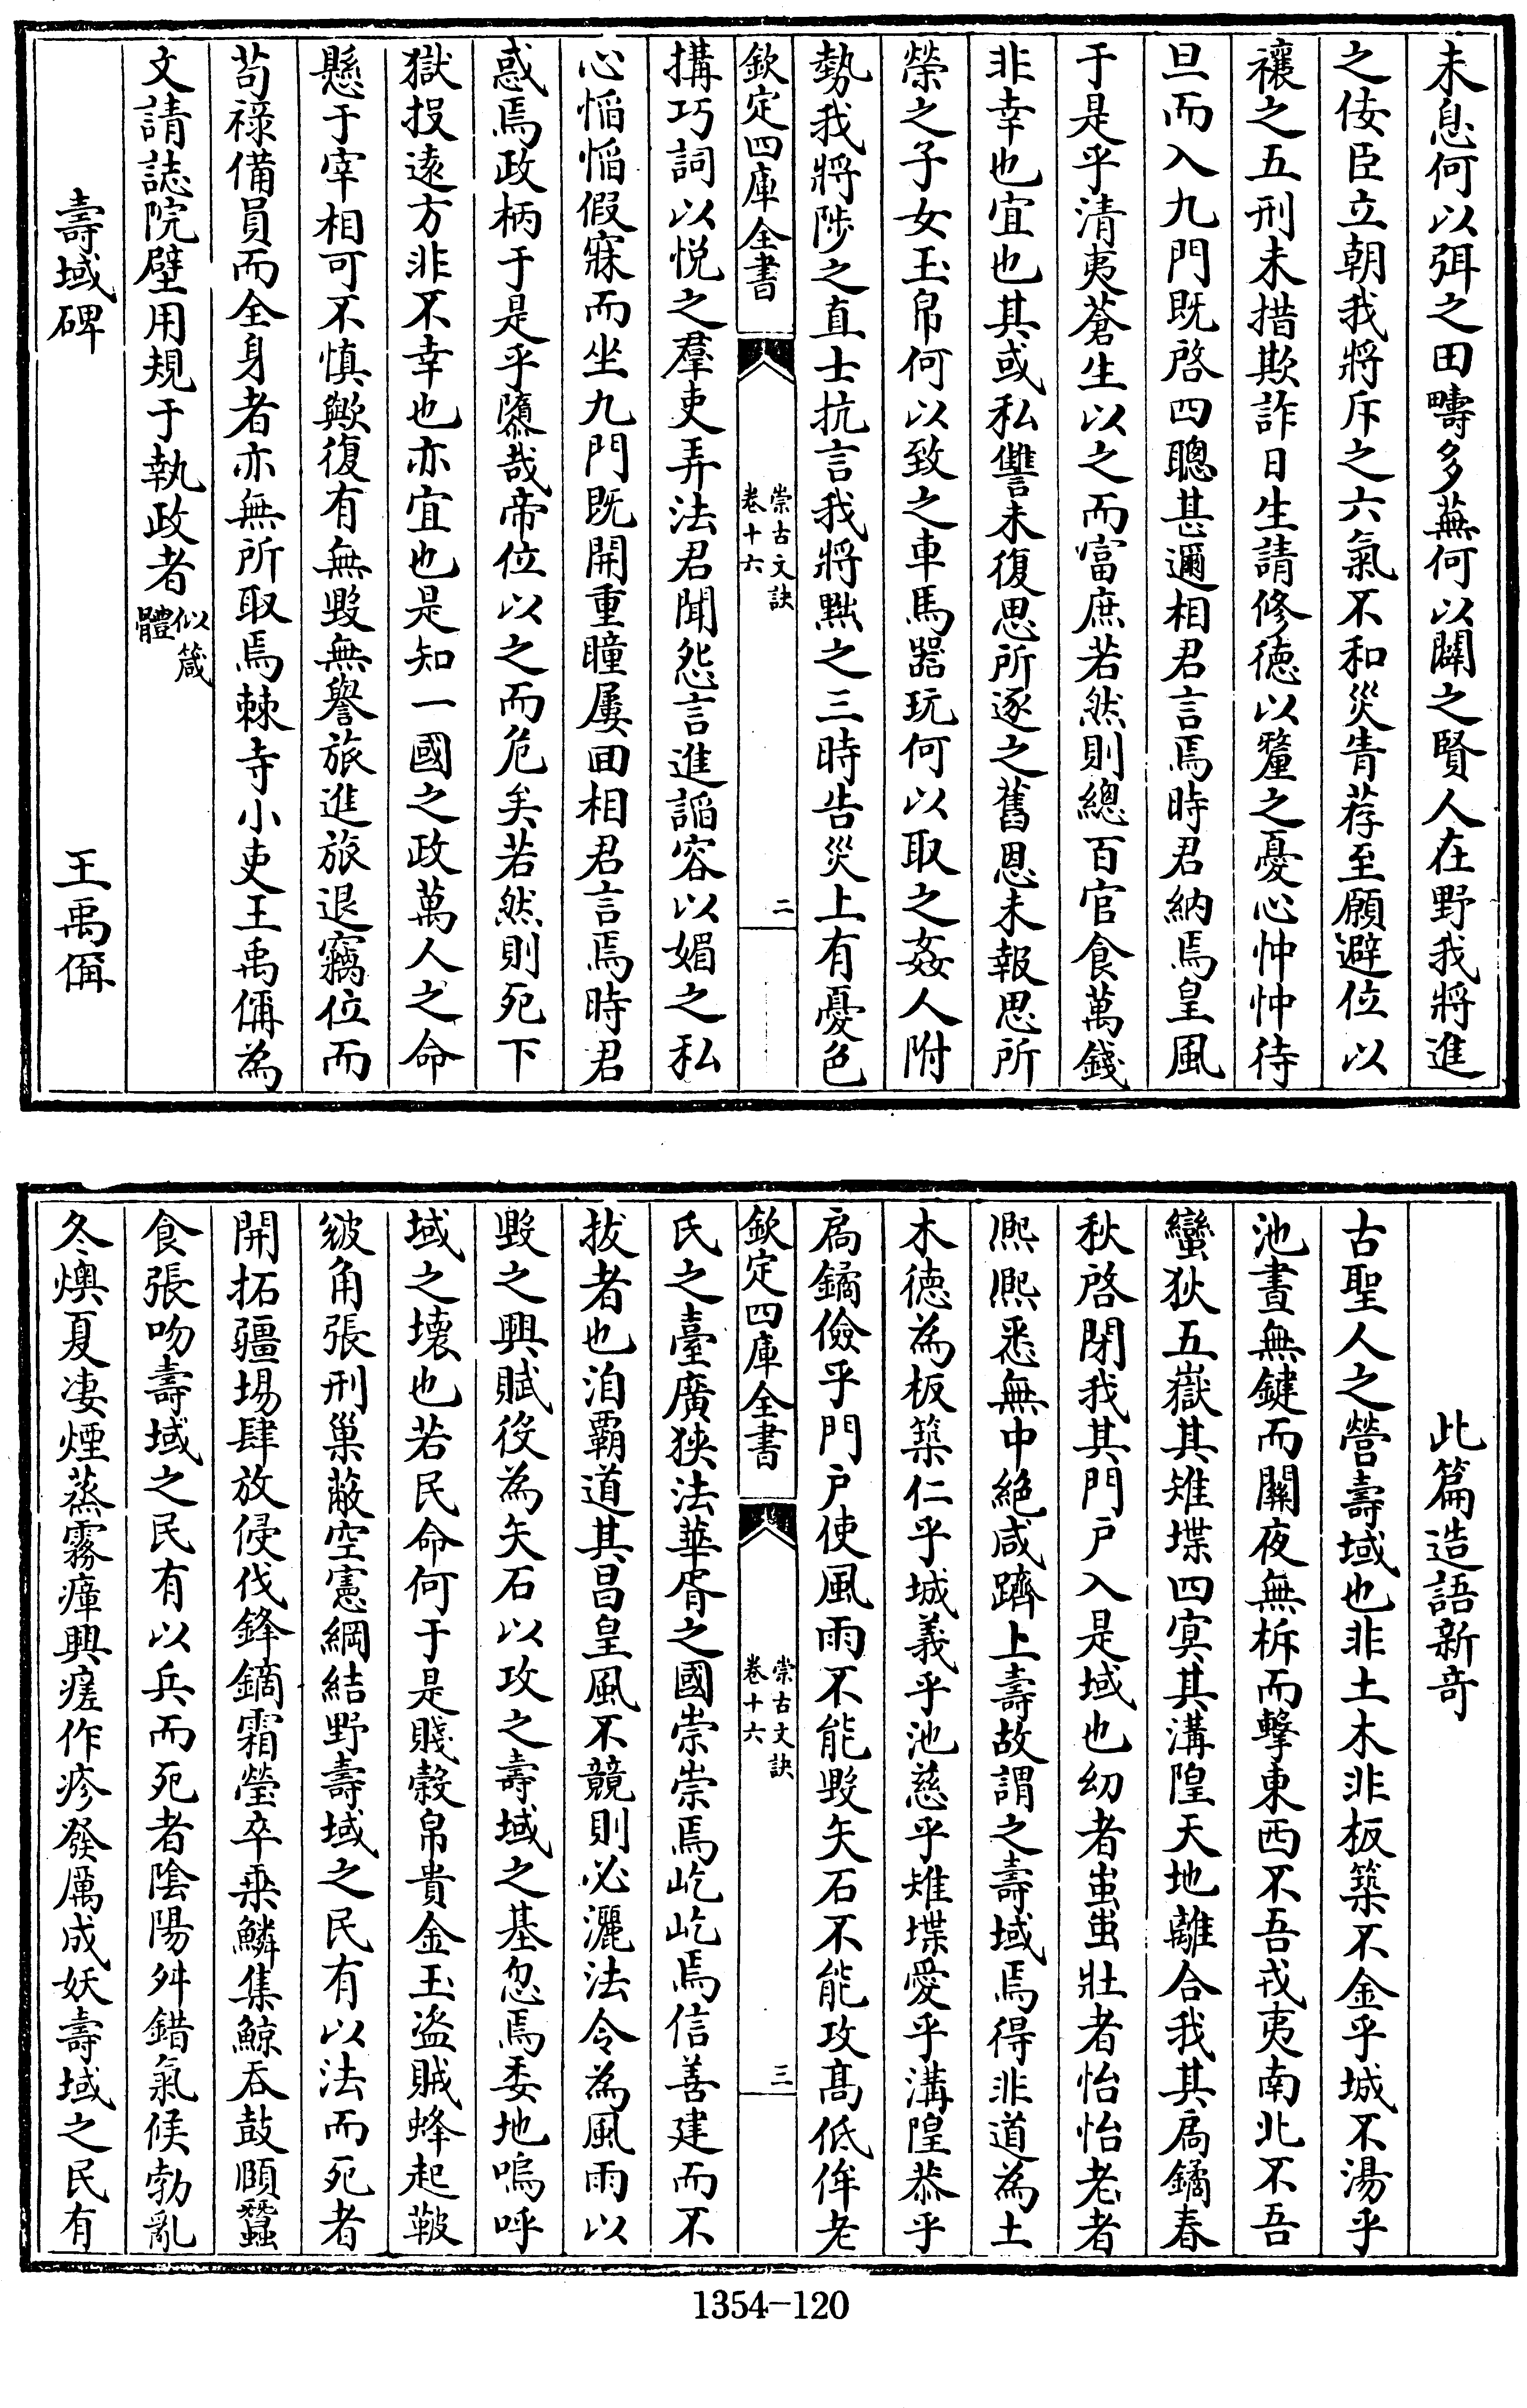 未息何以弭之田疇多蕪何以闢之賢人在野我將進
之佞臣立朝我將斥之六氣不和災眚荐至願避位以
禳之五刑未措欺詐日生請修德以釐之憂心忡忡待
旦而入九門既啓四聰甚邇相君言焉時君納焉皇風
于是乎清夷蒼生以之而富庶若然則總百官食萬錢
非幸也宜也其或私讐未復思所逐之舊恩未報思所
榮之子女玉帛何以致之車馬器玩何以取之姦人附
勢我將陟之直士抗言我將黜之三時告災上有憂色
欽定四庫全書
崇古文訣
卷十六
二
搆巧詞以悦之羣吏弄法君聞怨言進謟容以媚之私
心慆慆假寐而坐九門既開重瞳屢回相君言焉時君
惑焉政柄于是乎隳哉帝位以之而危矣若然則死下
獄投逺方非不幸也亦宜也是知一國之政萬人之命
懸于宰相可不慎歟復有無毀無譽旅進旅退竊位而
苟禄備員而全身者亦無所取焉棘寺小吏王禹偁為
文請誌院壁用規于執政者似箴
體
壽域碑　王禹偁
此篇造語新奇
古聖人之營壽域也非土木非板築不金乎城不湯乎
池晝無鍵而關夜無柝而擊東西不吾戎夷南北不吾
蠻狄五嶽其雉堞四㝠其溝隍天地離合我其扃鐍春
秋啓閉我其門户入是域也幼者蚩蚩壯者怡怡老者
熈熈悉無中絶咸躋上壽故謂之壽域焉得非道為土
木徳為板築仁乎城義乎池慈乎雉堞愛乎溝隍恭乎
扃鐍儉乎門户使風雨不能毀矢石不能攻髙低侔老
欽定四庫全書
崇古文訣
卷十六
三
氏之臺廣狹法華胥之國崇崇焉屹屹焉信善建而不
拔者也洎覇道其昌皇風不競則必灑法令為風雨以
毀之興賦役為矢石以攻之壽域之基忽焉委地嗚呼
域之壊也若民命何于是賤榖帛貴金玉盗賊蜂起鞁
皴角張刑巢蔽空憲綱結野壽域之民有以法而死者
開拓疆場肆放侵伐鋒鏑霜瑩卒乗鱗集鯨吞鼓頤蠶
食張吻壽域之民有以兵而死者隂陽舛錯氣候勃亂
冬燠夏凄煙蒸霧瘴興瘥作疹發厲成妖壽域之民有
1354-120